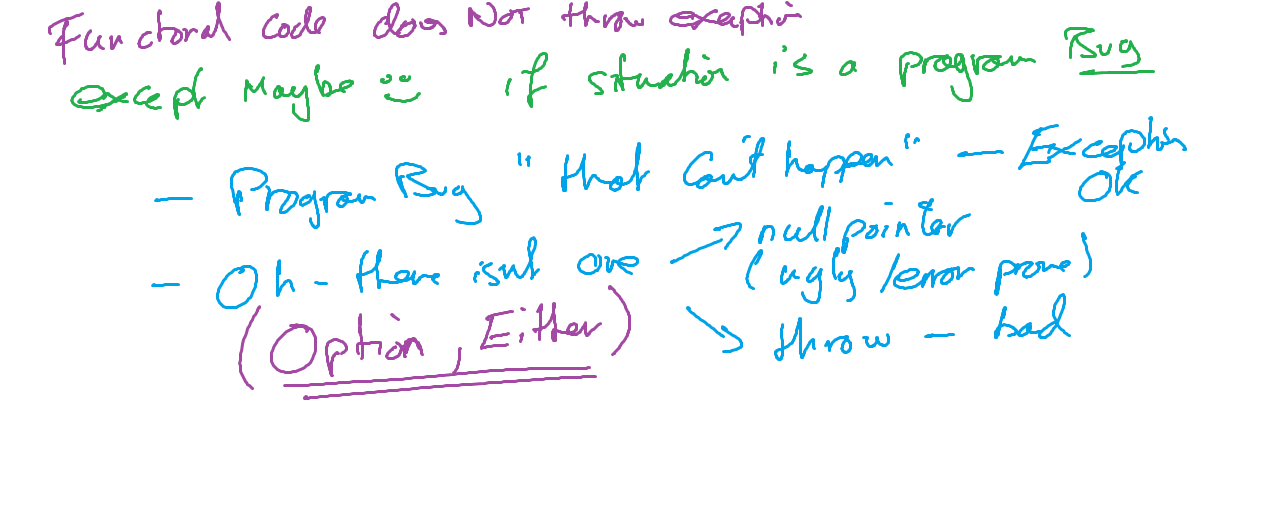 Functional code does NOT throw exception
except Maybe if situation is a program Bug
- Program Bug "that Can't happen" - Exception OK
- Oh - there isn't one
null pointer
(ugly/error prone)
throw - bad
(Option, Either)